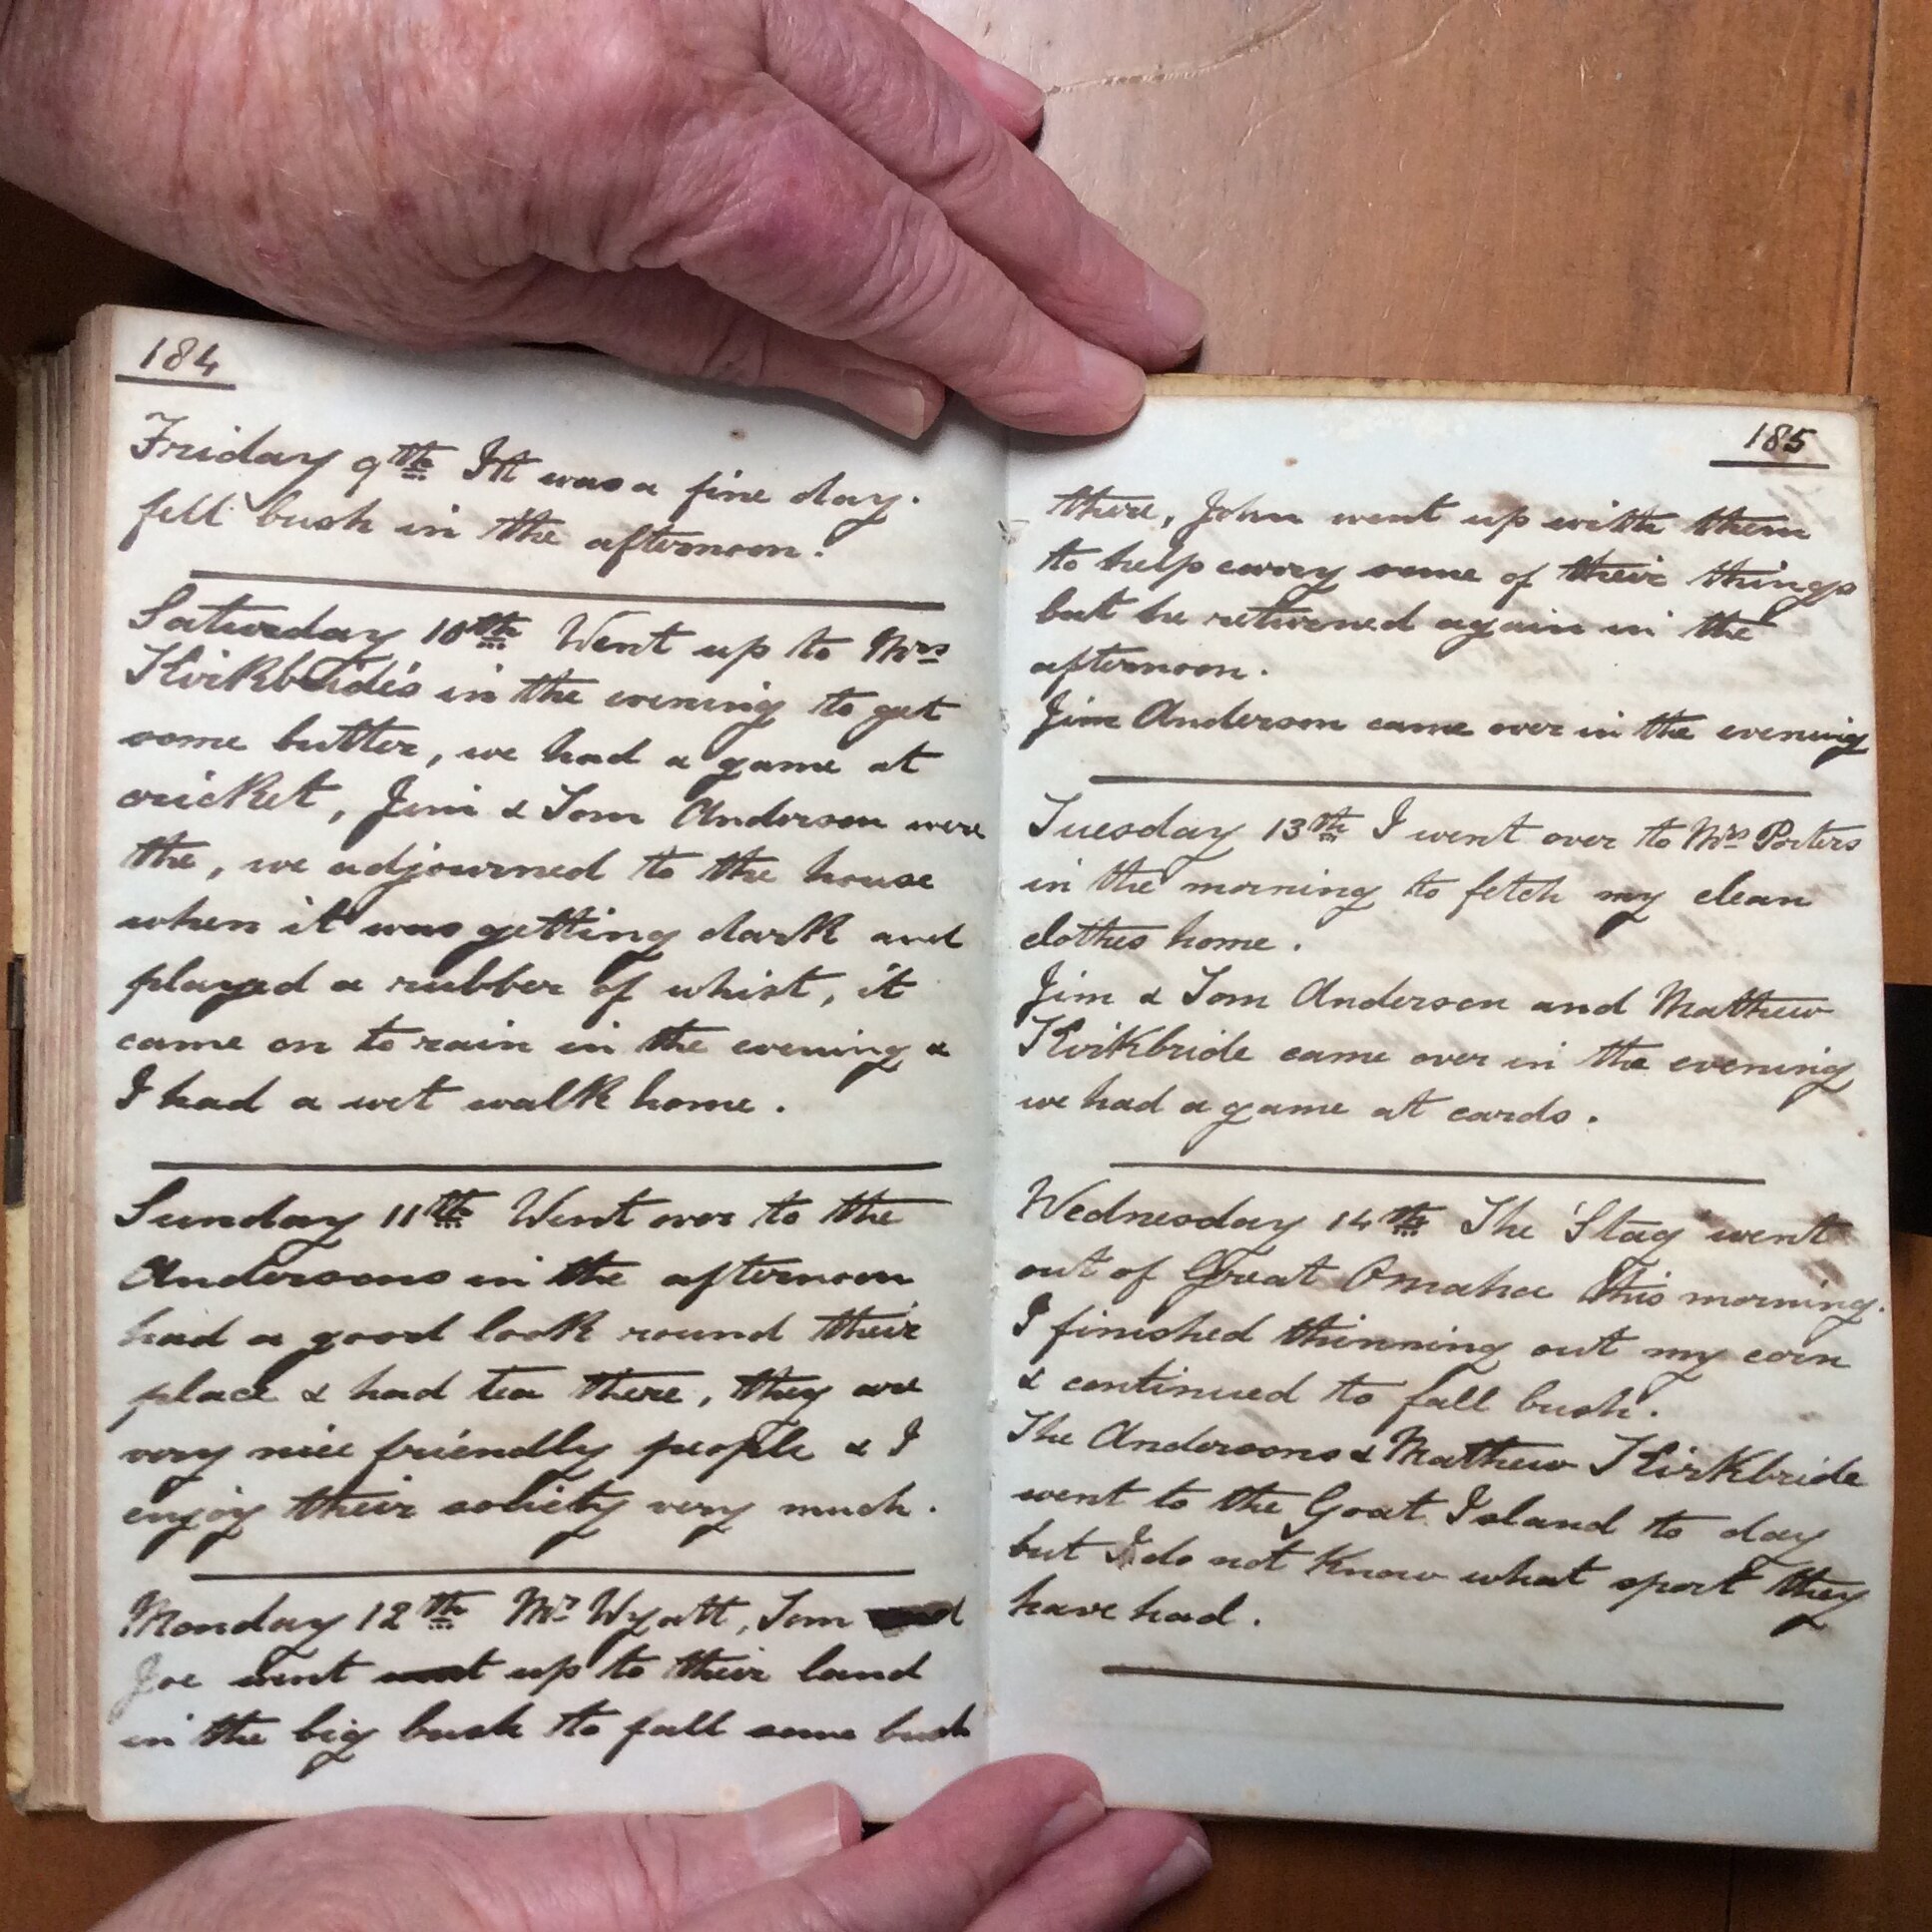 184
Friday 9th It was a fine day.
fell bush in the afternoon.
Saturday 10th Went up to Mrs
Kirkbride's in the evening to get
some butter, we had a game at
cricket, Jim & Tom Anderson were
the, we adjourned to the house
when it was getting dark and
played a rubber of whist, it
came on to rain in the evening &
I had a wet walk home.
Sunday 11th Went over to the
Andersons in the afternoon
had a good look round their
place & had tea there, they are
very nice friendly people & I
enjoy their society very much.
Monday 12th Mr Wyatt, Tom and
Joe went went up to their land
in the big bush to fall some bush
185
there, John went up with them
to help carry some of their things
but he returned again in the
afternoon.
Jim Anderson came over in the evening
Tuesday 13th I went over to Mrs Porters
in the morning to fetch my clean
clothes home.
Jim & Tom Anderson and Mathew
Kirkbride came over in the evening
we had a game at cards.
Wednesday 14th The 'Stag' went
out of Great Omaha this morning.
I finished thinning out my corn
& continued to fall bush.
The Andersons & Mathew Kirkbride
went to the Goat Island to day
but I do not know what sport they
have had.